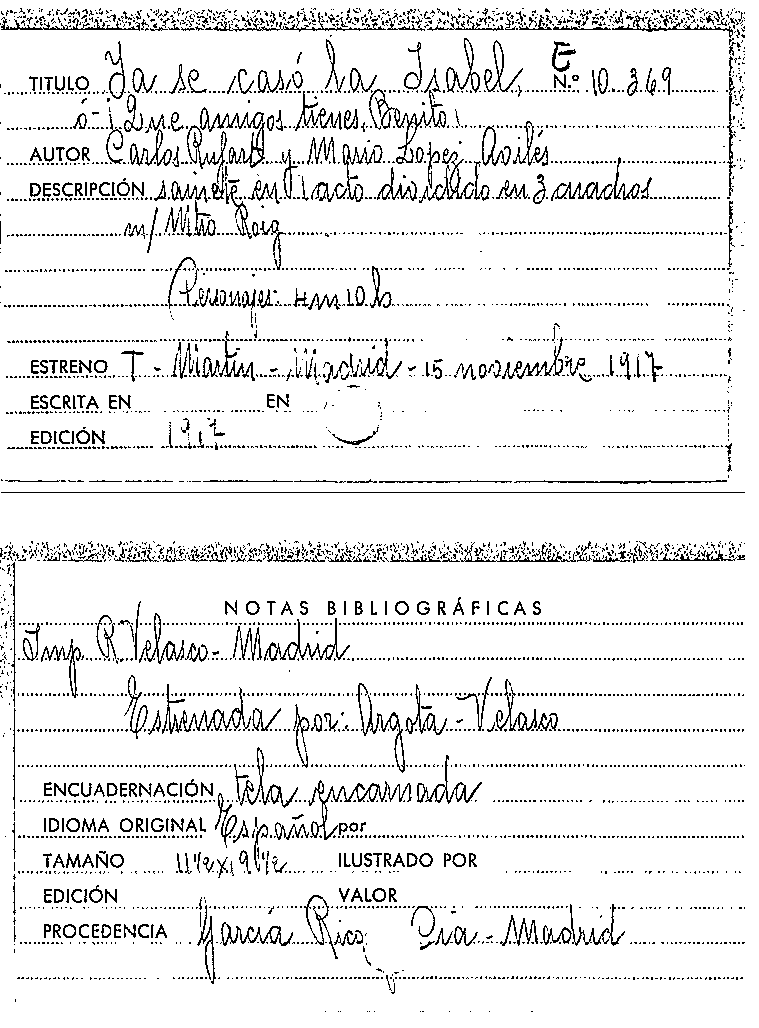 E
TITULO Ya se casó la Isabel, N.º 10.369
ó-¡Que amigos tienes, Benito!
AUTOR Carlos Rufart y Mario Lopez Avilés
DESCRIPCIÓN sainete en 1 acto dividido en 3 cuadros
m/ Mtro Roig
Personajes: 4m 10h
ESTRENO T - Martín - Madrid - 15 noviembre 1917
ESCRITA EN EN
EDICIÓN 1917
NOTAS BIBLIOGRÁFICAS
Imp R. Velasco - Madrid
Estrenada por: Argota - Velasco
ENCUADERNACIÓN tela encarnada
IDIOMA ORIGINAL Español por
TAMAÑO 11½x19½ ILUSTRADO POR
EDICIÓN VALOR
PROCEDENCIA García Rico Cia - Madrid